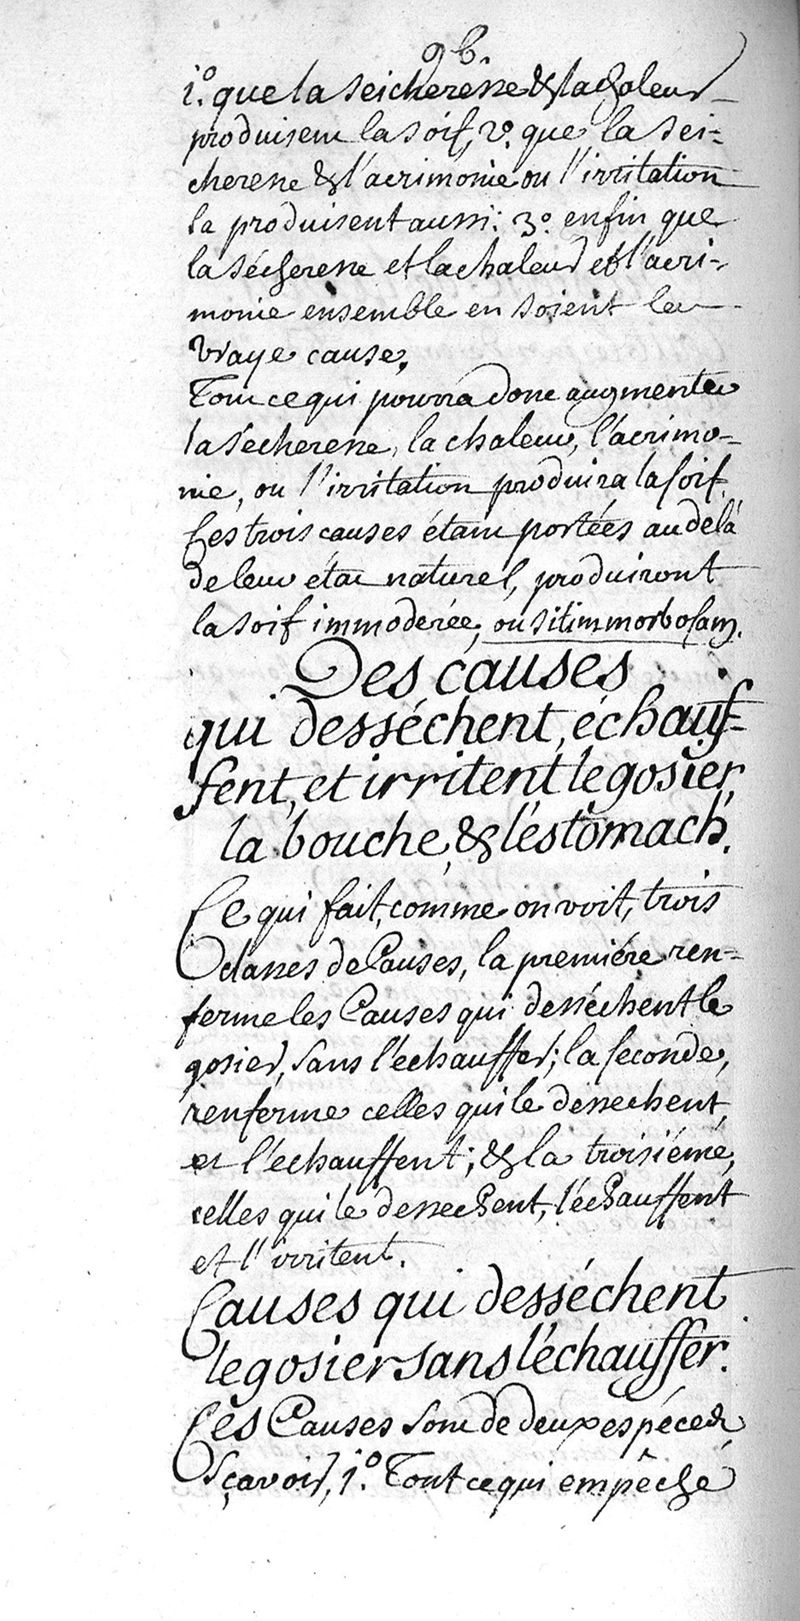 96.
1.º que la seicheresse & la chaleur
produisent la soif, 2º. que la sei-
cheresse & l'acrimonie ou l'irritation
la produisent aussi: 3º enfin que
la sécheresse et la chaleur et l'acri-
monie ensemble en soient la
vraye cause.
Tout ce qui pourra donc augmenter
la sécheresse, la chaleur, l'acrimo-
nie, ou l'irritation produira la soif.
Ces trois causes étant portées au delà
de leur état naturel, produiront
la soif immoderée, ou sitim morbosam.
Des causes
qui desséchent, échauf-
fent, et irritent le gosier,
la bouche, & l'éstomach.
Ce qui fait, comme on voit, trois
classes de Causes, la premiére ren-
ferme les Causes qui desséchent le
gosier, sans l'échauffer; la seconde,
renferme celles qui le dessechent,
et l'échauffent; & la troisiéme,
celles qui le dessechent, l'échauffent
et l'irritent.
Causes qui desséchent
le gosier sans l'échauffer.
Ces Causes sont de deux espéces,
Sçavoir, 1.º Tout ce qui empêche